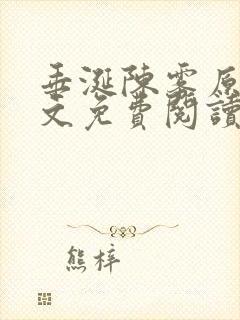 垂涎陳霧原
文免費閱讀
熊梓